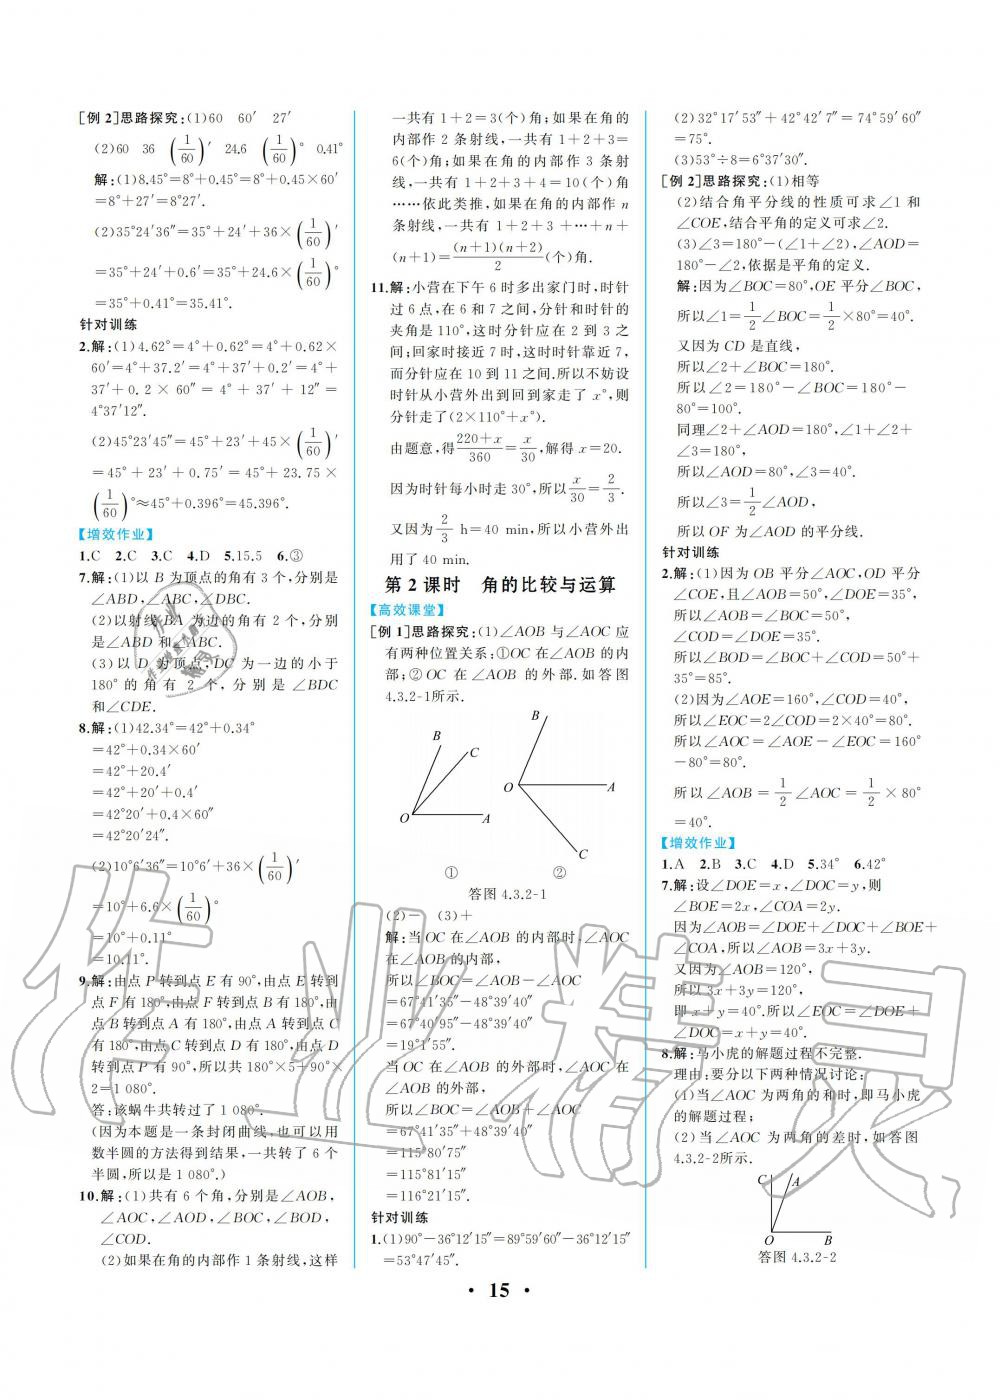 [例 2]思路探究:(1)60　60′　27′
(2)60　36　(1/60)′　24.6　(1/60)°　0.41°
解:(1)8.45°=8°+0.45°=8°+0.45×60′
=8°+27′=8°27′.
(2)35°24′36″=35°+24′+36×(1/60)′
=35°+24′+0.6′=35°+24.6×(1/60)°
=35°+0.41°=35.41°.
针对训练
2.解:(1)4.62°=4°+0.62°=4°+0.62×
60′=4°+37.2′=4°+37′+0.2′=4°+
37′+0.2×60″=4°+37′+12″=
4°37′12″.
(2)45°23′45″=45°+23′+45×(1/60)′
=45°+23′+0.75′=45°+23.75×
(1/60)°≈45°+0.396°=45.396°.
【增效作业】
1.C　2.C　3.C　4.D　5.15.5　6.③
7.解:(1)以 B 为顶点的角有 3 个,分别是
∠ABD,∠ABC,∠DBC.
(2)以射线 BA 为边的角有 2 个,分别
是∠ABD 和∠ABC.
(3)以 D 为顶点,DC 为一边的小于
180°的角有 2 个,分别是∠BDC
和∠CDE.
8.解:(1)42.34°=42°+0.34°
=42°+0.34×60′
=42°+20.4′
=42°+20′+0.4′
=42°20′+0.4×60″
=42°20′24″.
(2)10°6′36″=10°6′+36×(1/60)′
=10°+6.6×(1/60)°
=10°+0.11°
=10.11°.
9.解:由点 P 转到点 E 有 90°,由点 E 转到
点 F 有 180°,由点 F 转到点 B 有 180°,由
点 B 转到点 A 有 180°,由点 A 转到点 C
有 180°,由点 C 转到点 D 有 180°,由点 D
转到点 P 有 90°,所以共 180°×5+90°×
2=1 080°.
答:该蜗牛共转过了 1 080°.
(因为本题是一条封闭曲线,也可以用
数半圆的方法得到结果,一共转了 6 个
半圆,所以是 1 080°.)
10.解:(1)共有 6 个角,分别是∠AOB,
∠AOC,∠AOD,∠BOC,∠BOD,
∠COD.
(2)如果在角的内部作 1 条射线,这样
一共有 1+2=3(个)角;如果在角的
内部作 2 条射线,一共有 1+2+3=
6(个)角;如果在角的内部作 3 条射
线,一共有 1+2+3+4=10(个)角
……依此类推,如果在角的内部作 n
条射线,一共有 1+2+3+…+n+
(n+1)=(n+1)(n+2)/2(个)角.
11.解:小营在下午 6 时多出家门时,时针
过 6 点,在 6 和 7 之间,分针和时针的
夹角是 110°,这时分针应在 2 到 3 之
间;回家时接近 7 时,这时时针靠近 7,
而分针应在 10 到 11 之间.所以不妨设
时针从小营外出到回到家走了 x°,则
分针走了(2×110°+x°).
由题意,得(220+x)/360=x/30,解得 x=20.
因为时针每小时走 30°,所以 x/30=2/3.
又因为 2/3 h=40 min,所以小营外出
用了 40 min.
第 2 课时　角的比较与运算
【高效课堂】
[例 1]思路探究:(1)∠AOB 与∠AOC 应
有两种位置关系:①OC 在∠AOB 的内
部;②OC 在∠AOB 的外部.如答图
4.3.2-1所示.
B
C
O
A
①
B
O
A
C
②
答图 4.3.2-1
(2)-　(3)+
解:当 OC 在∠AOB 的内部时,∠AOC
在∠AOB 的内部,
所以∠BOC=∠AOB-∠AOC
=67°41′35″-48°39′40″
=67°40′95″-48°39′40″
=19°1′55″.
当 OC 在∠AOB 的外部时,∠AOC
在∠AOB 的外部,
所以∠BOC=∠AOB+∠AOC
=67°41′35″+48°39′40″
=115°80′75″
=115°81′15″
=116°21′15″.
针对训练
1.(1)90°-36°12′15″=89°59′60″-36°12′15″
=53°47′45″.
(2)32°17′53″+42°42′7″=74°59′60″
=75°.
(3)53°÷8=6°37′30″.
[例 2]思路探究:(1)相等
(2)结合角平分线的性质可求∠1 和
∠COE,结合平角的定义可求∠2.
(3)∠3=180°-(∠1+∠2),∠AOD=
180°-∠2,依据是平角的定义.
解:因为∠BOC=80°,OE 平分∠BOC,
所以∠1=1/2∠BOC=1/2×80°=40°.
又因为 CD 是直线,
所以∠2+∠BOC=180°.
所以∠2=180°-∠BOC=180°-
80°=100°.
同理∠2+∠AOD=180°,∠1+∠2+
∠3=180°,
所以∠AOD=80°,∠3=40°.
所以∠3=1/2∠AOD,
所以 OF 为∠AOD 的平分线.
针对训练
2.解:(1)因为 OB 平分∠AOC,OD 平分
∠COE,且∠AOB=50°,∠DOE=35°,
所以∠AOB=∠BOC=50°,
∠COD=∠DOE=35°.
所以∠BOD=∠BOC+∠COD=50°+
35°=85°.
(2)因为∠AOE=160°,∠COD=40°,
所以∠EOC=2∠COD=2×40°=80°.
所以∠AOC=∠AOE-∠EOC=160°
-80°=80°.
所以∠AOB=1/2∠AOC=1/2×80°
=40°.
【增效作业】
1.A　2.B　3.C　4.D　5.34°　6.42°
7.解:设∠DOE=x,∠DOC=y,则
∠BOE=2x,∠COA=2y.
因为∠AOB=∠DOE+∠DOC+∠BOE+
∠COA,所以∠AOB=3x+3y.
又因为∠AOB=120°,
所以 3x+3y=120°,
即 x+y=40°.所以∠EOC=∠DOE+
∠DOC=x+y=40°.
8.解:马小虎的解题过程不完整.
理由:要分以下两种情况讨论:
(1)当∠AOC 为两角的和时,即马小虎
的解题过程;
(2)当∠AOC 为两角的差时,如答图
4.3.2-2所示.
C
A
O
B
答图 4.3.2-2
· 15 ·
作业精灵